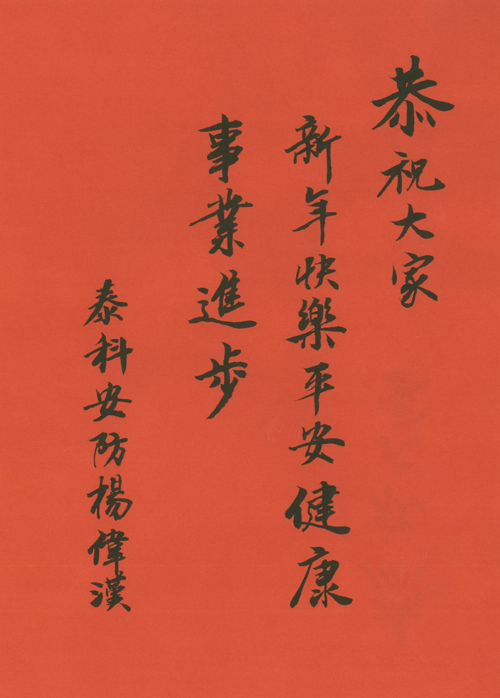 恭祝大家
新年快樂平安健康
事業進步
泰科安防楊偉漢